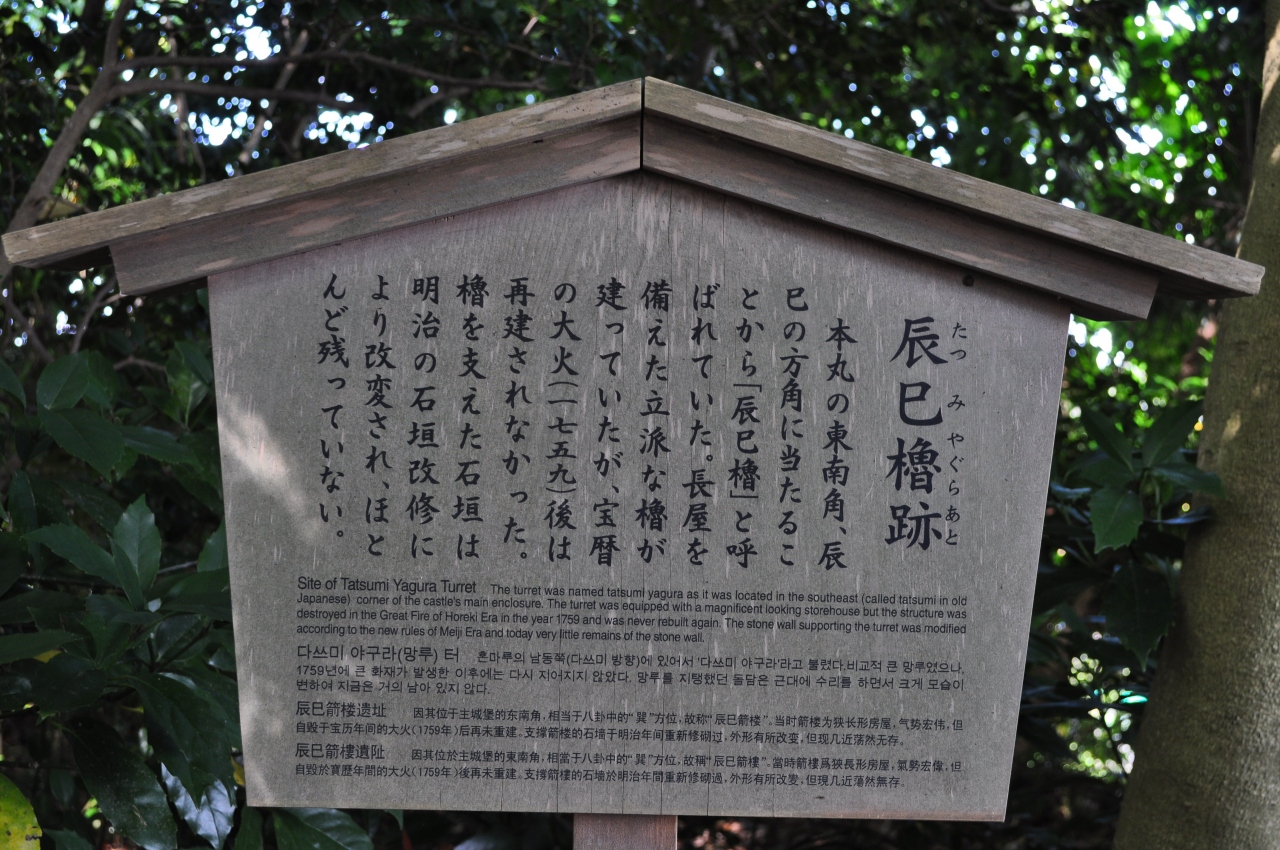 辰巳櫓跡
たつ み やぐらあと
本丸の東南角、辰
巳の方角に当たるこ
とから「辰巳櫓」と呼
ばれていた。長屋を
備えた立派な櫓が
建っていたが、宝暦
の大火(一七五九)後は
再建されなかった。
櫓を支えた石垣は
明治の石垣改修に
より改変され、ほと
んど残っていない。
Site of Tatsumi Yagura Turret The turret was named tatsumi yagura as it was located in the southeast (called tatsumi in old
Japanese) corner of the castle's main enclosure. The turret was equipped with a magnificent looking storehouse but the structure was
destroyed in the Great Fire of Horeki Era in the year 1759 and was never rebuilt again. The stone wall supporting the turret was modified
according to the new rules of Meiji Era and today very little remains of the stone wall.
다쓰미 야구라(망루) 터 혼마루의 남동쪽(다쓰미 방향)에 있어서 '다쓰미 야구라'라고 불렸다.비교적 큰 망루였으나,
1759년에 큰 화재가 발생한 이후에는 다시 지어지지 않았다. 망루를 지탱했던 돌담은 근대에 수리를 하면서 크게 모습이
변하여 지금은 거의 남아 있지 않다.
辰巳箭楼遗址 因其位于主城堡的东南角,相当于八卦中的"巽"方位,故称"辰巳箭楼"。当时箭楼为狭长形房屋,气势宏伟,但
自毁于宝历年间的大火(1759年)后再未重建。支撑箭楼的石墙于明治年间重新修砌过,外形有所改变,但现几近荡然无存。
辰巳箭樓遺阯 因其位於主城堡的東南角,相當于八卦中的"巽"方位,故稱"辰巳箭樓"。當時箭樓爲狹長形房屋,氣勢宏偉,但
自毀於寶歷年間的大火(1759年)後再未重建。支撐箭樓的石墻於明治年間重新修砌過,外形有所改变,但現几近蕩然無存。